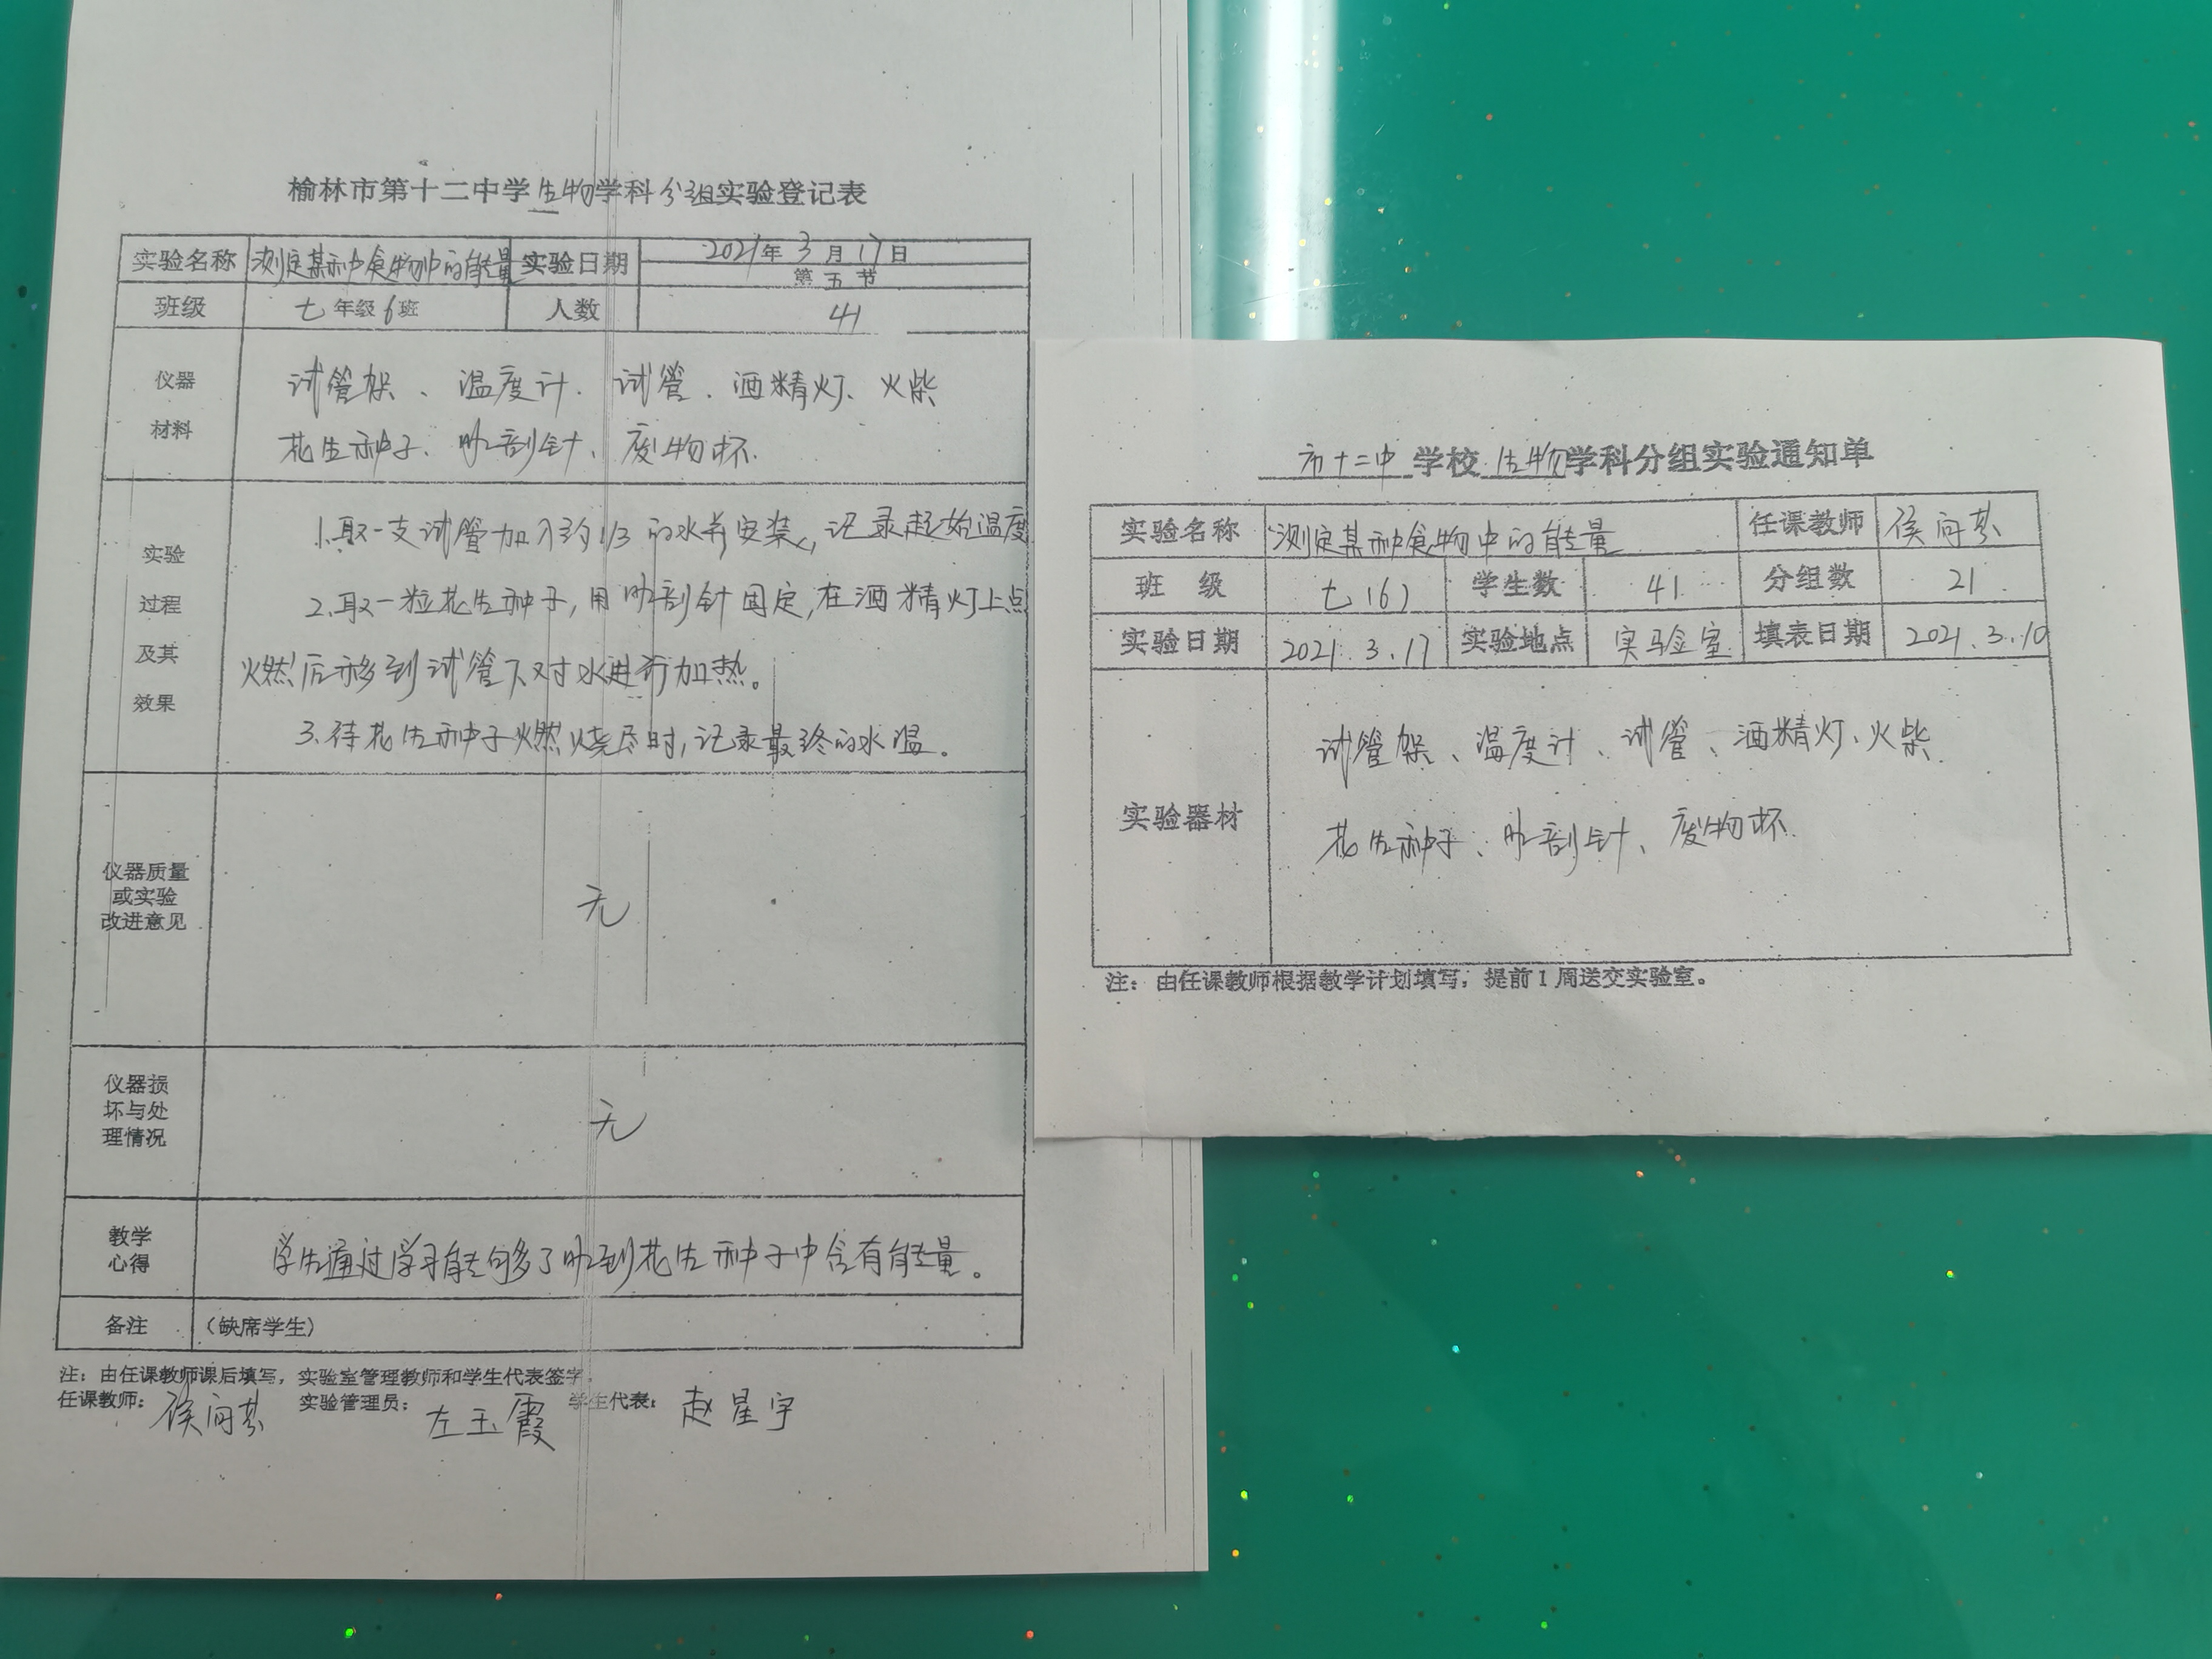 榆林市第十二中学生物学科分组实验登记表
实验名称 测定某种食物中的能量 实验日期 2021年3月17日
第五节
班级 七年级6班 人数 41
仪器
材料
试管架、温度计、试管、酒精灯、火柴
花生种子、解剖针、废物杯.
实验
过程
及其
效果
1.取一支试管加入约1/3的水并安装,记录起始温度
2.取一粒花生种子,用解剖针固定,在酒精灯上点
燃后移到试管下对水进行加热。
3.待花生种子燃烧尽时,记录最终的水温。
仪器质量
或实验
改进意见
无
仪器损
坏与处
理情况
无
教学
心得
学生通过学习能够了解到花生种子中含有能量。
备注 (缺席学生)
注：由任课教师课后填写，实验室管理教师和学生代表签字。
任课教师： 侯向 实验管理员： 左玉霞 学生代表： 赵星宇
市十二中学校生物学科分组实验通知单
实验名称 测定某种食物中的能量 任课教师 侯向
班 级 七(6) 学生数 41 分组数 21
实验日期 2021.3.17 实验地点 实验室 填表日期 2021.3.10
实验器材
试管架、温度计、试管、酒精灯、火柴
花生种子、解剖针、废物杯.
注：由任课教师根据教学计划填写，提前1周送交实验室。